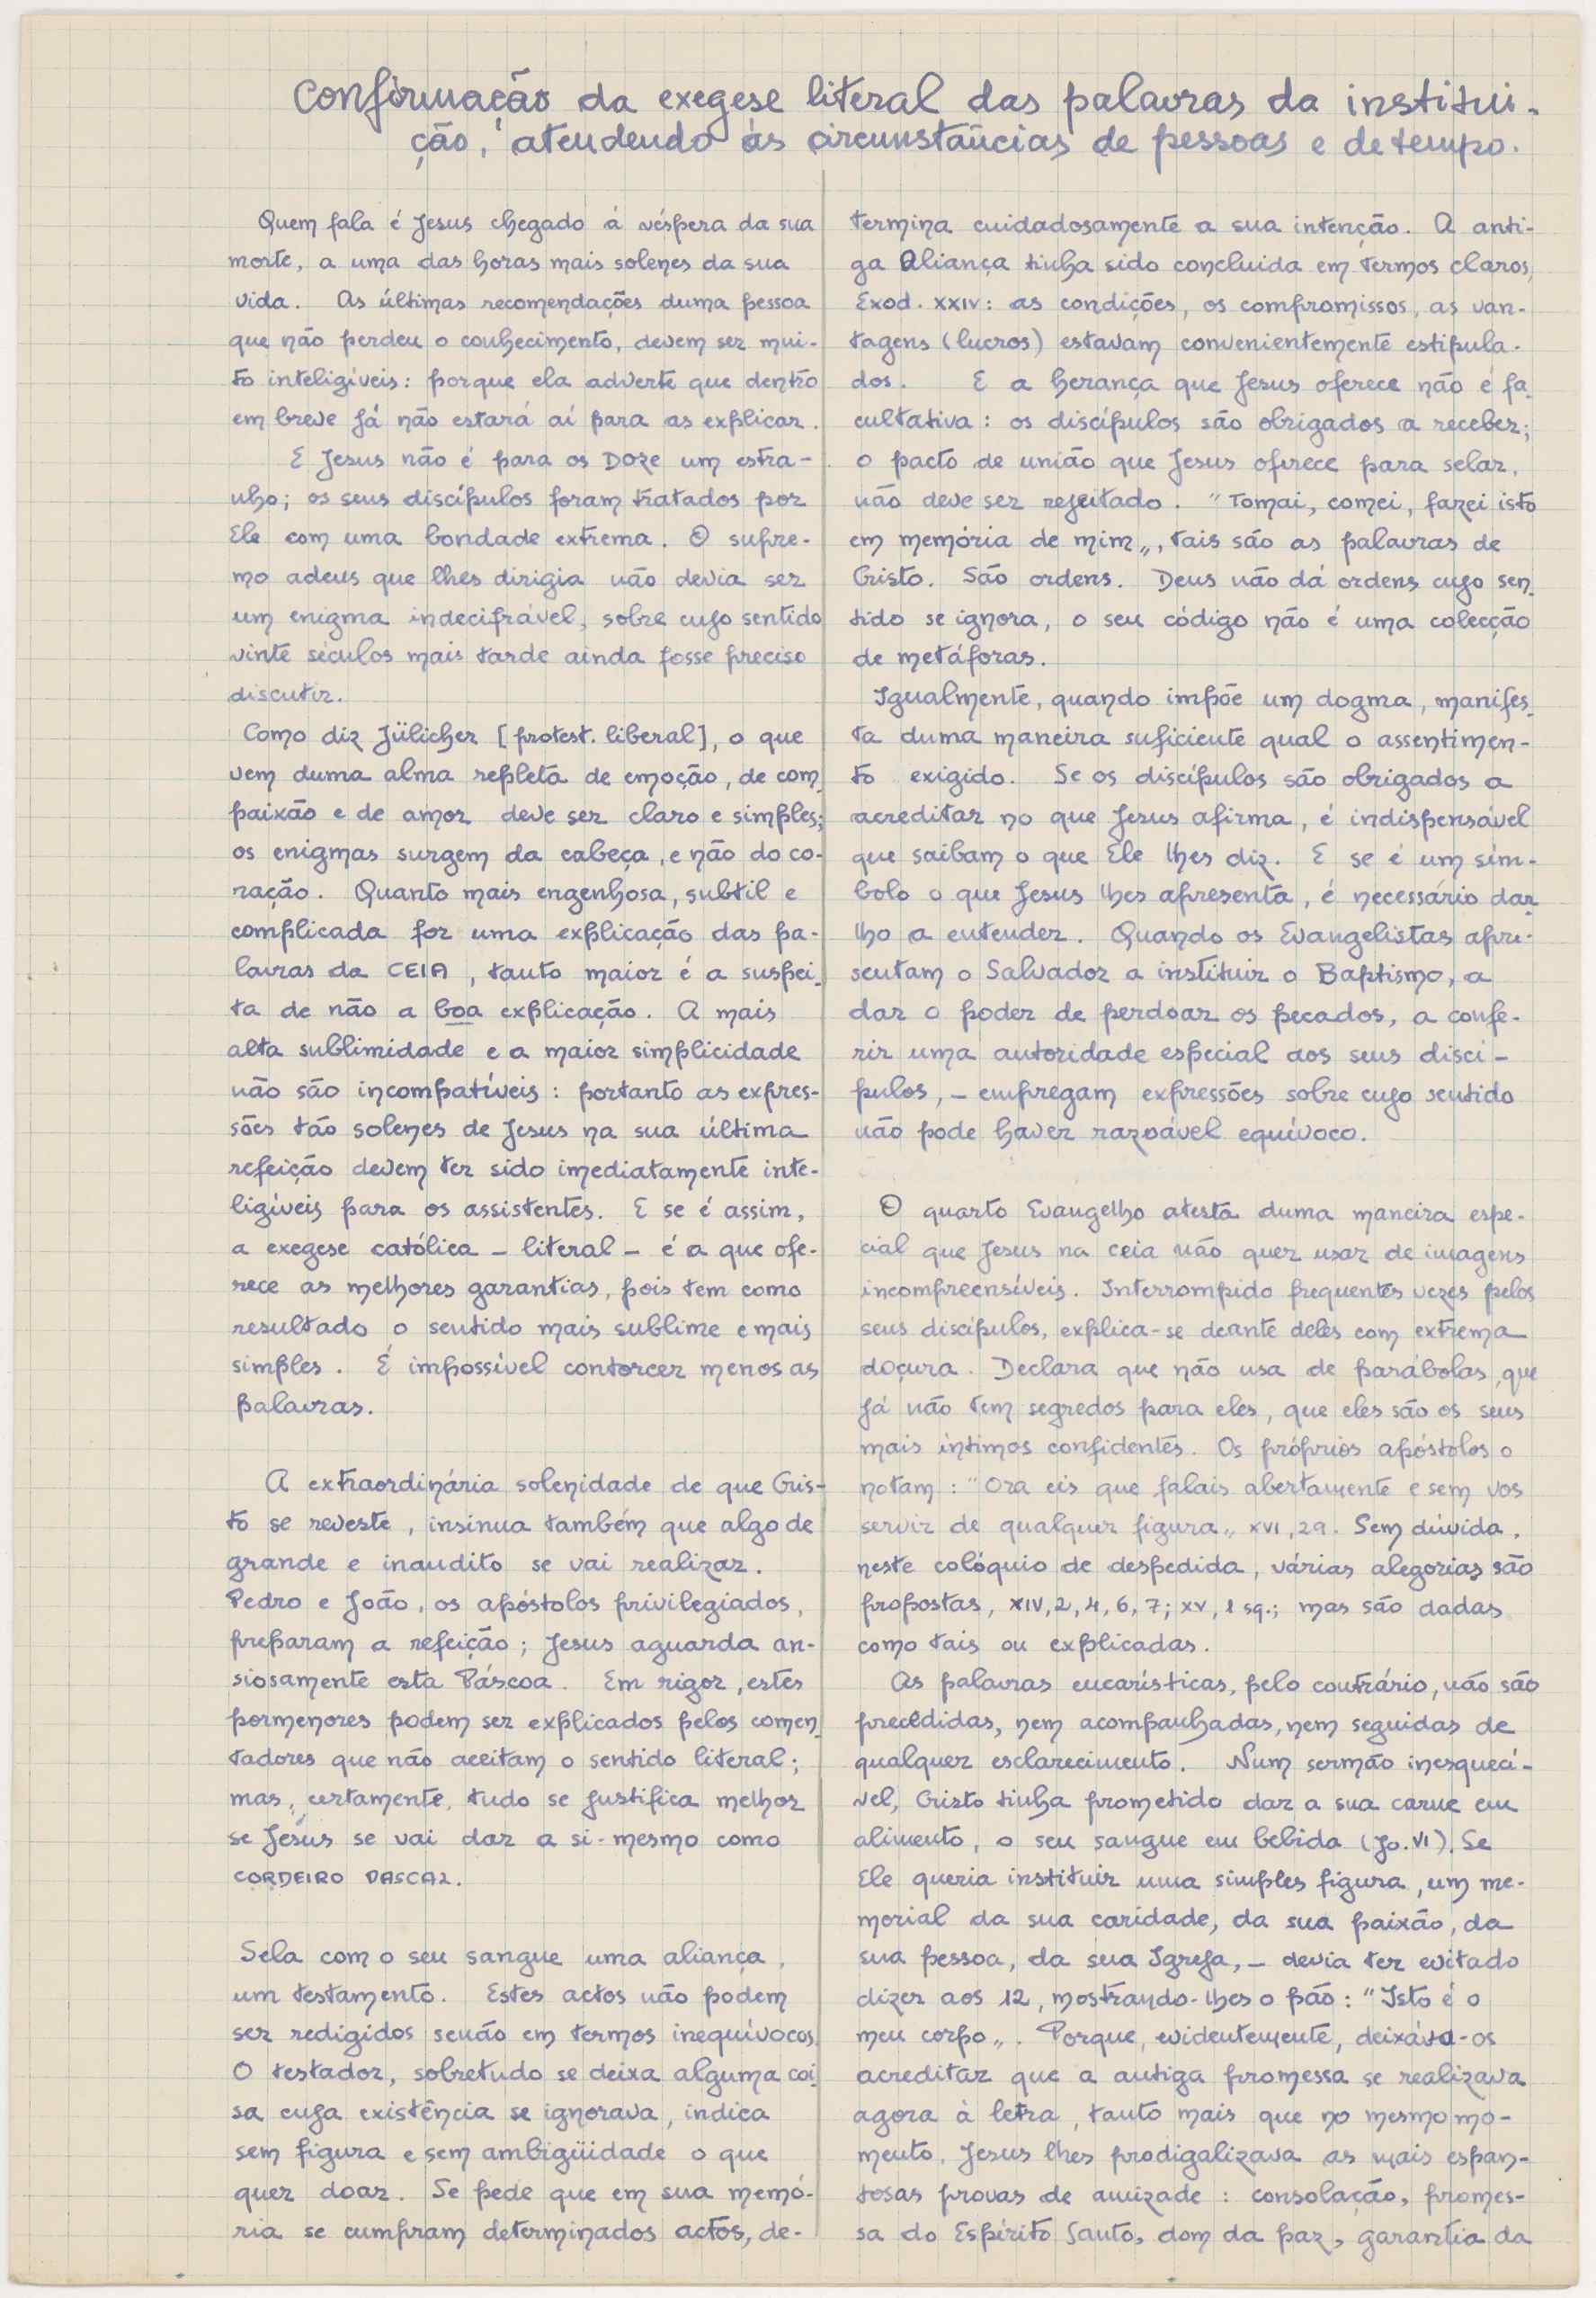 Confirmação da exegese literal das palavras da institui-
ção, atendendo às circunstâncias de pessoas e de tempo.
Quem fala é Jesus chegado á véspera da sua
morte, a uma das horas mais solenes da sua
vida. As últimas recomendações duma pessoa
que não perdeu o conhecimento, devem ser mui-
to inteligíveis: porque ela adverte que dentro
em breve já não estará aí para as explicar.
E Jesus não é para os Doze um estra-
nho; os seus discípulos foram tratados por
Ele com uma bondade extrema. O supre-
mo adeus que lhes dirigia não devia ser
um enigma indecifrável, sobre cujo sentido
vinte séculos mais tarde ainda fosse preciso
discutir.
Como diz Jülicher [protest. liberal], o que
vem duma alma repleta de emoção, de com-
paixão e de amor deve ser claro e simples;
os enigmas surgem da cabeça, e não do co-
ração. Quanto mais engenhosa, subtil e
complicada for uma explicação das pa-
lavras da CEIA, tanto maior é a suspei-
ta de não a boa explicação. A mais
alta sublimidade e a maior simplicidade
não são incompatíveis: portanto as expres-
sões tão solenes de Jesus na sua última
refeição devem ter sido imediatamente inte-
ligíveis para os assistentes. E se é assim,
a exegese católica - literal - é a que ofe-
rece as melhores garantias, pois tem como
resultado o sentido mais sublime e mais
simples. É impossível contorcer menos as
palavras.
A extraordinária solenidade de que Cris-
to se reveste, insinua também que algo de
grande e inaudito se vai realizar.
Pedro e João, os apóstolos privilegiados,
preparam a refeição; Jesus aguarda an-
siosamente esta Páscoa. Em rigor, estes
pormenores podem ser explicados pelos comen-
tadores que não aceitam o sentido literal;
mas, certamente, tudo se justifica melhor
se Jesus se vai dar a si-mesmo como
CORDEIRO PASCAL.
Sela com o seu sangue uma aliança,
um testamento. Estes actos não podem
ser redigidos senão em termos inequívocos.
O testador, sobretudo se deixa alguma coi-
sa cuja existência se ignorava, indica
sem figura e sem ambigüidade o que
quer doar. Se pede que em sua memó-
ria se cumpram determinados actos, de-
termina cuidadosamente a sua intenção. A anti-
ga Aliança tinha sido concluida em termos claros,
Exod. XXIV: as condições, os compromissos, as van-
tagens (lucros) estavam convenientemente estipula-
dos. E a herança que Jesus oferece não é fa-
cultativa: os discípulos são obrigados a receber;
o pacto de união que Jesus oferece para selar,
não deve ser rejeitado. "Tomai, comei, fazei isto
em memória de mim„, tais são as palavras de
Cristo. São ordens. Deus não dá ordens cujo sen-
tido se ignora, o seu código não é uma colecção
de metáforas.
Igualmente, quando impõe um dogma, manifes-
ta duma maneira suficiente qual o assentimen-
to exigido. Se os discípulos são obrigados a
acreditar no que Jesus afirma, é indispensável
que saibam o que Ele lhes diz. E se é um sím-
bolo o que Jesus lhes apresenta, é necessário dar-
lho a entender. Quando os Evangelistas apre-
sentam o Salvador a instituir o Baptismo, a
dar o poder de perdoar os pecados, a confe-
rir uma autoridade especial aos seus discí-
pulos, - empregam expressões sobre cujo sentido
não pode haver razoável equívoco.
O quarto Evangelho atesta duma maneira espe-
cial que Jesus na ceia não quer usar de imagens
incompreensíveis. Interrompido frequentes vezes pelos
seus discípulos, explica-se deante deles com extrema
doçura. Declara que não usa de parábolas, que
já não tem segredos para eles, que eles são os seus
mais íntimos confidentes. Os próprios apóstolos o
notam: "Ora eis que falais abertamente e sem vos
servir de qualquer figura„ XVI, 29. Sem dúvida,
neste colóquio de despedida, várias alegorias são
propostas, XIV, 2, 4, 6, 7; XV, 1 sq.; mas são dadas
como tais ou explicadas.
As palavras eucarísticas, pelo contrário, não são
precedidas, nem acompanhadas, nem seguidas de
qualquer esclarecimento. Num sermão inesquecí-
vel, Cristo tinha prometido dar a sua carne em
alimento, o seu sangue em bebida (Jo. VI). Se
Ele queria instituir uma simples figura, um me-
morial da sua caridade, da sua paixão, da
sua pessoa, da sua Igreja, - devia ter evitado
dizer aos 12, mostrando-lhes o pão: "Isto é o
meu corpo„. Porque, evidentemente, deixáva-os
acreditar que a antiga promessa se realizava
agora à letra, tanto mais que no mesmo mo-
mento, Jesus lhes prodigalizava as mais espan-
tosas provas de amizade: consolação, promes-
sa do Espírito Santo, dom da paz, garantia da